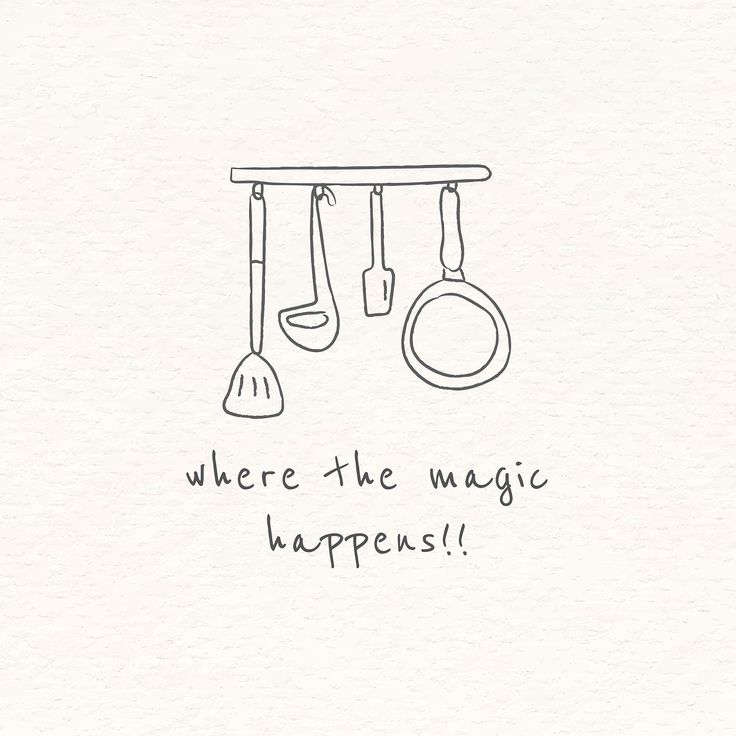 where the magic
happens!!